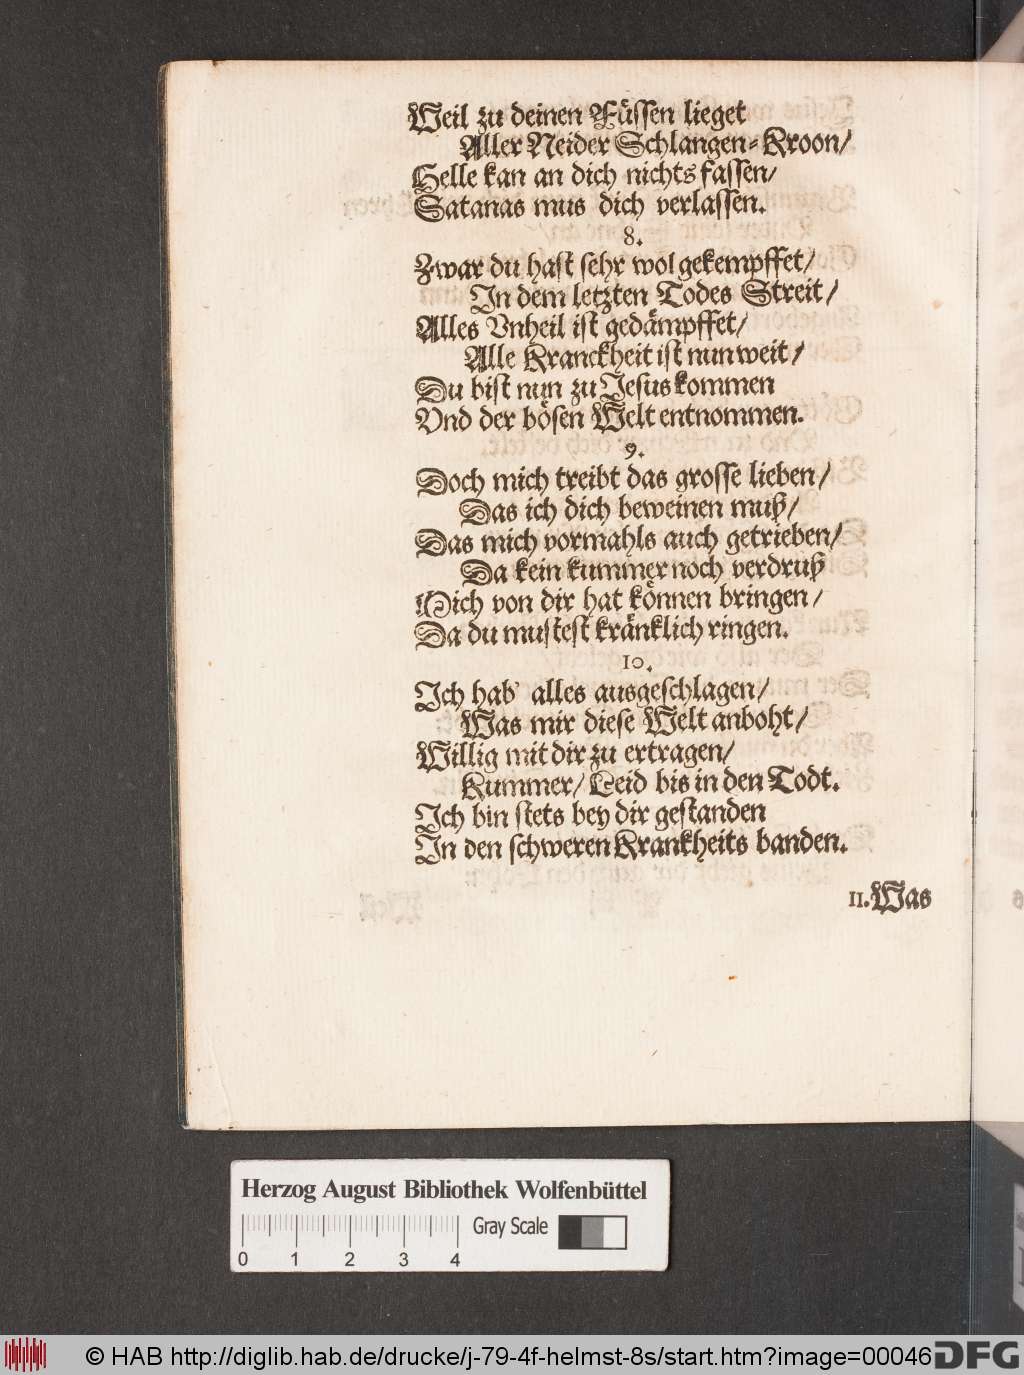 Weil zu deinen Füssen lieget
Aller Neider Schlangen-Kroon/
Helle kan an dich nichts fassen/
Satanas mus dich verlassen.
8.
Zwar du hast sehr wol gekempffet/
In dem letzten Todes Streit/
Alles Vnheil ist gedämpffet/
Alle Kranckheit ist nun weit/
Du bist nun zu Jesus kommen
Vnd der bösen Welt entnommen.
9.
Doch mich treibt das grosse lieben/
Das ich dich beweinen muß/
Das mich vormahls auch getrieben/
Da kein kummer noch verdruß
Mich von dir hat können bringen/
Da du mustest kränklich ringen.
10.
Ich hab' alles ausgeschlagen/
Was mir diese Welt anboht/
Willig mit dir zu ertragen/
Kummer/ Leid bis in den Todt.
Ich bin stets bey dir gestanden
In den schweren Krankheits banden.
11. Was
Herzog August Bibliothek Wolfenbüttel
Gray Scale
0 1 2 3 4
© HAB http://diglib.hab.de/drucke/j-79-4f-helmst-8s/start.htm?image=00046
DFG